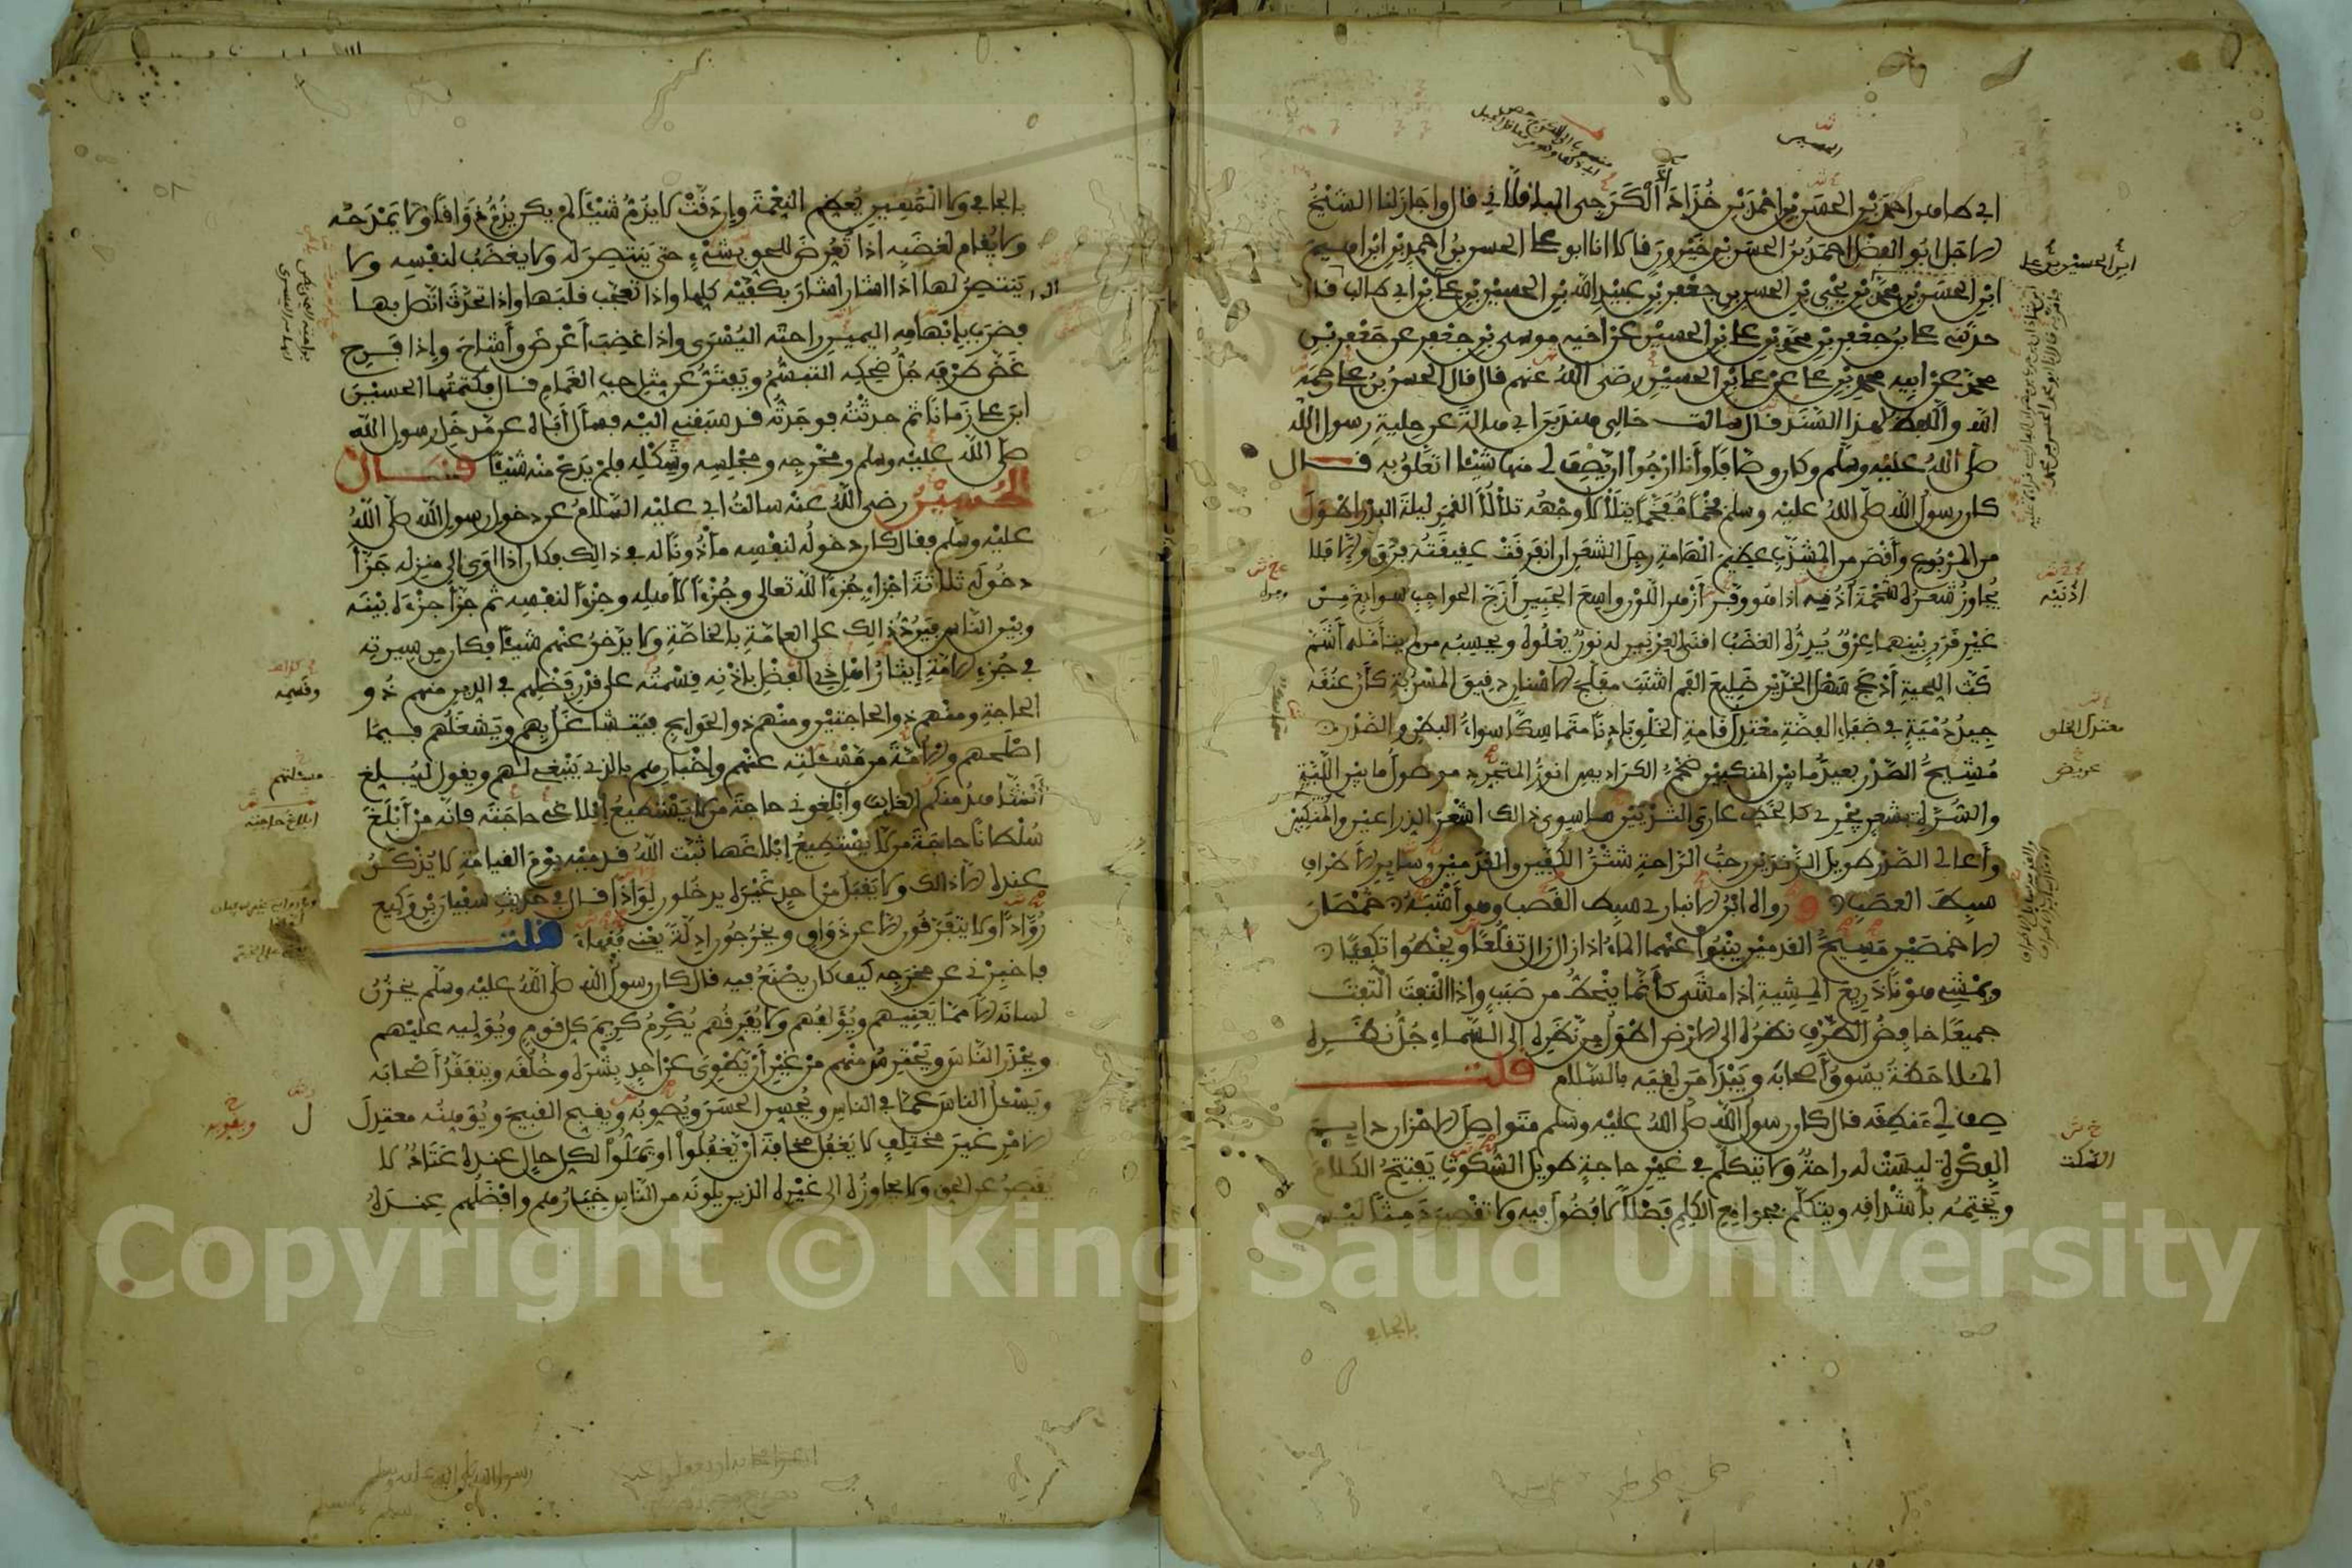 ابي طاهر احمد بن الحسن بن احمد بن خذاداذ الكرجي الباقلاني قال واجاز لنا الشيخ
الاجل ابو الفضل احمد بن الحسن بن خيرون قالا انا ابو علي الحسن بن احمد بن ابراهيم
ابن الحسن بن محمد بن يحيى بن الحسن بن جعفر بن عبيد الله بن الحسين بن علي بن ابي طالب قال
حدثني علي بن جعفر بن محمد بن علي بن الحسين عن اخيه موسى بن جعفر عن جعفر بن
محمد عن ابيه محمد بن علي عن علي بن الحسين رضي الله عنهم قال قال الحسن بن علي رحمه
الله واللفظ لهذا السند قال سالت خالي هند بن ابي هالة عن حلية رسول الله
صلى الله عليه وسلم وكان وصافا وأنا ارجوا ان يصف لي منها شيئا اتعلق به قال
كان رسول الله صلى الله عليه وسلم فخما مفخما يتلألأ وجهه تلألأ القمر ليلة البدر اطول
من المربوع وأقصر من المشذب عظيم الهامة رجل الشعر ان انفرقت عقيقته فرق والا فلا
يجاوز شعره شحمة اذنيه اذا هو وفره أزهر اللون واسع الجبين أزج الحواجب سوابغ من
غير قرن بينهما عرق يدره الغضب اقنى العرنين له نور يعلوه ويحسبه من لم يتأمله أشم
كث اللحية أدعج سهل الخدين ضليع الفم اشنب مفلج الاسنان دقيق المسربة كأن عنقه
جيد دمية في صفاء الفضة معتدل قامة الخلق بادنا متماسكا سواء البطن والصدر
مشيح الصدر بعيد ما بين المنكبين ضخم الكراديس انور المتجرد موصول ما بين اللبة
والسرة بشعر يجري كالخط عاري الثديين ما سوى ذالك اشعر الذراعين والمنكبين
وأعالي الصدر طويل الزندين رحب الراحة شثن الكفين والقدمين وسايل الاطراف
سبط العصب ورواه ابن الانباري سبط القصب وهو أشبه خمصان
الاخمصين مسيح القدمين ينبوا عنهما الماء اذا زال زال تقلعا ويخطوا تكفيا
ويمشي هونا ذريع المشية اذا مشى كأنما ينحط من صبب واذا التفت التفت
جميعا خافض الطرف نظره الى الارض اطول من نظره الى السماء جل نظره
الملاحظة يسوق أصحابه ويبدأ من لقيه بالسلام قلت
صف لي منطقه قال كان رسول الله صلى الله عليه وسلم متواصل الاحزان دايم
الفكرة ليست له راحة ولا يتكلم في غير حاجة طويل السكوت يفتتح الكلام
ويختمه بأشداقه ويتكلم بجوامع الكلم فصلا لا فضول فيه ولا تقصير دمثا ليس
بالجافي
ابن الحسين بن علي
اذنيه
معتدل الخلق
عريض
السكت
بالجافي ولا المهين يعظم النعمة وان دقت لا يذم شيئا لم يكن يذم ذواقا ولا يمدحه
ولا يقام لغضبه اذا تعرض للحق بشيء حتى ينتصر له ولا يغضب لنفسه ولا
ينتصر لها اذا اشار اشار بكفيه كلها واذا تعجب قلبها واذا تحدث اتصل بها
فضرب بابهامه اليمين راحته اليسرى واذا غضب أعرض وأشاح واذا فرح
غض طرفه جل ضحكه التبسم ويفتر عن مثل حب الغمام قال فكتمتها الحسين
ابن علي زمانا ثم حدثته فوجدته قد سبقني اليه فسأل أباه عن مدخل رسول الله
صلى الله عليه وسلم ومخرجه ومجلسه وشكله فلم يدع منه شيئا قال
الحسين رضي الله عنه سالت ابي عليه السلام عن دخول رسول الله صلى الله
عليه وسلم فقال كان دخوله لنفسه مأذونا له في ذالك فكان اذا اوى الى منزله جزأ
دخوله ثلاثة اجزاء جزءا لله تعالى وجزءا لأهله وجزءا لنفسه ثم جزأ جزءه بينه
وبين الناس فيرد ذالك على العامة بالخاصة ولا يدخر عنهم شيئا فكان من سيرته
في جزء الامة إيثار اهل الفضل باذنه قسمته على قدر فضلهم في الدين منهم ذو
الحاجة ومنهم ذو الحاجتين ومنهم ذو الحوايج فيتشاغل بهم ويشغلهم فيما
اصلحهم والامة من مسئلته عنهم واخبارهم بالذي ينبغي لهم ويقول ليبلغ
الشاهد منكم الغايب وأبلغوني حاجة من لا يستطيع ابلاغي حاجته فانه من أبلغ
سلطانا حاجة من لا يستطيع ابلاغها ثبت الله قدميه يوم القيامة لا يذكر
عنده الا ذالك ولا يقبل من احد غيره يدخلون لواذا قال في حديث سفيان بن وكيع
روادا ولا يتفرقون الا عن ذواق ويخرجون ادلة يعني فقهاء قلت
فاخبرني عن مخرجه كيف كان يصنع فيه قال كان رسول الله صلى الله عليه وسلم يخزن
لسانه الا مما يعنيهم ويؤلفهم ولا يفرقهم يكرم كريم كل قوم ويوليه عليهم
ويحذر الناس ويحترس منهم من غير أن يطوي عن احد بشره وخلقه ويتفقد أصحابه
ويسئل الناس عما في الناس ويحسن الحسن ويصوبه ويقبح القبيح ويوهنه معتدل
الامر غير مختلف لا يغفل مخافة ان يغفلوا او يملوا لكل حال عنده عتاد لا
يقصر عن الحق ولا يجاوزه الى غيره الذين يلونه من الناس خيارهم وافضلهم عنده
وقسمه
مسئلتهم
ابلاغ حاجته
ويقويه
Copyright © King Saud University